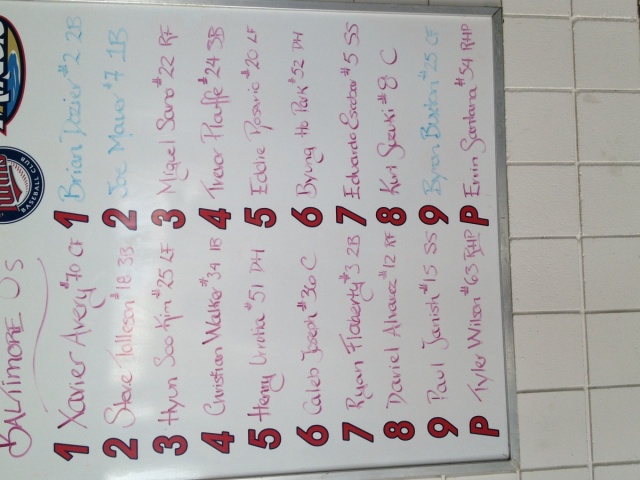 BALTIMORE OS
1 Xavier Avery #70 CF
2 Steve Tolleson #18 3B
3 Hyun Soo Kim #25 LF
4 Christian Walker #34 1B
5 Henry Urrutia #51 DH
6 Caleb Joseph #36 C
7 Ryan Flaherty #3 2B
8 Daniel Alvarez #12 RF
9 Paul Janish #15 SS
P Tyler Wilson #63 RHP
BASEBALL CLUB
1 Brian Dozier #2 2B
2 Joe Mauer #7 1B
3 Miguel Sano #22 RF
4 Trevor Plouffe #24 3B
5 Eddie Rosario #20 LF
6 Byung Ho Park #52 DH
7 Eduardo Escobar #5 SS
8 Kurt Suzuki #8 C
9 Byron Buxton #25 CF
P Ervin Santana #54 RHP